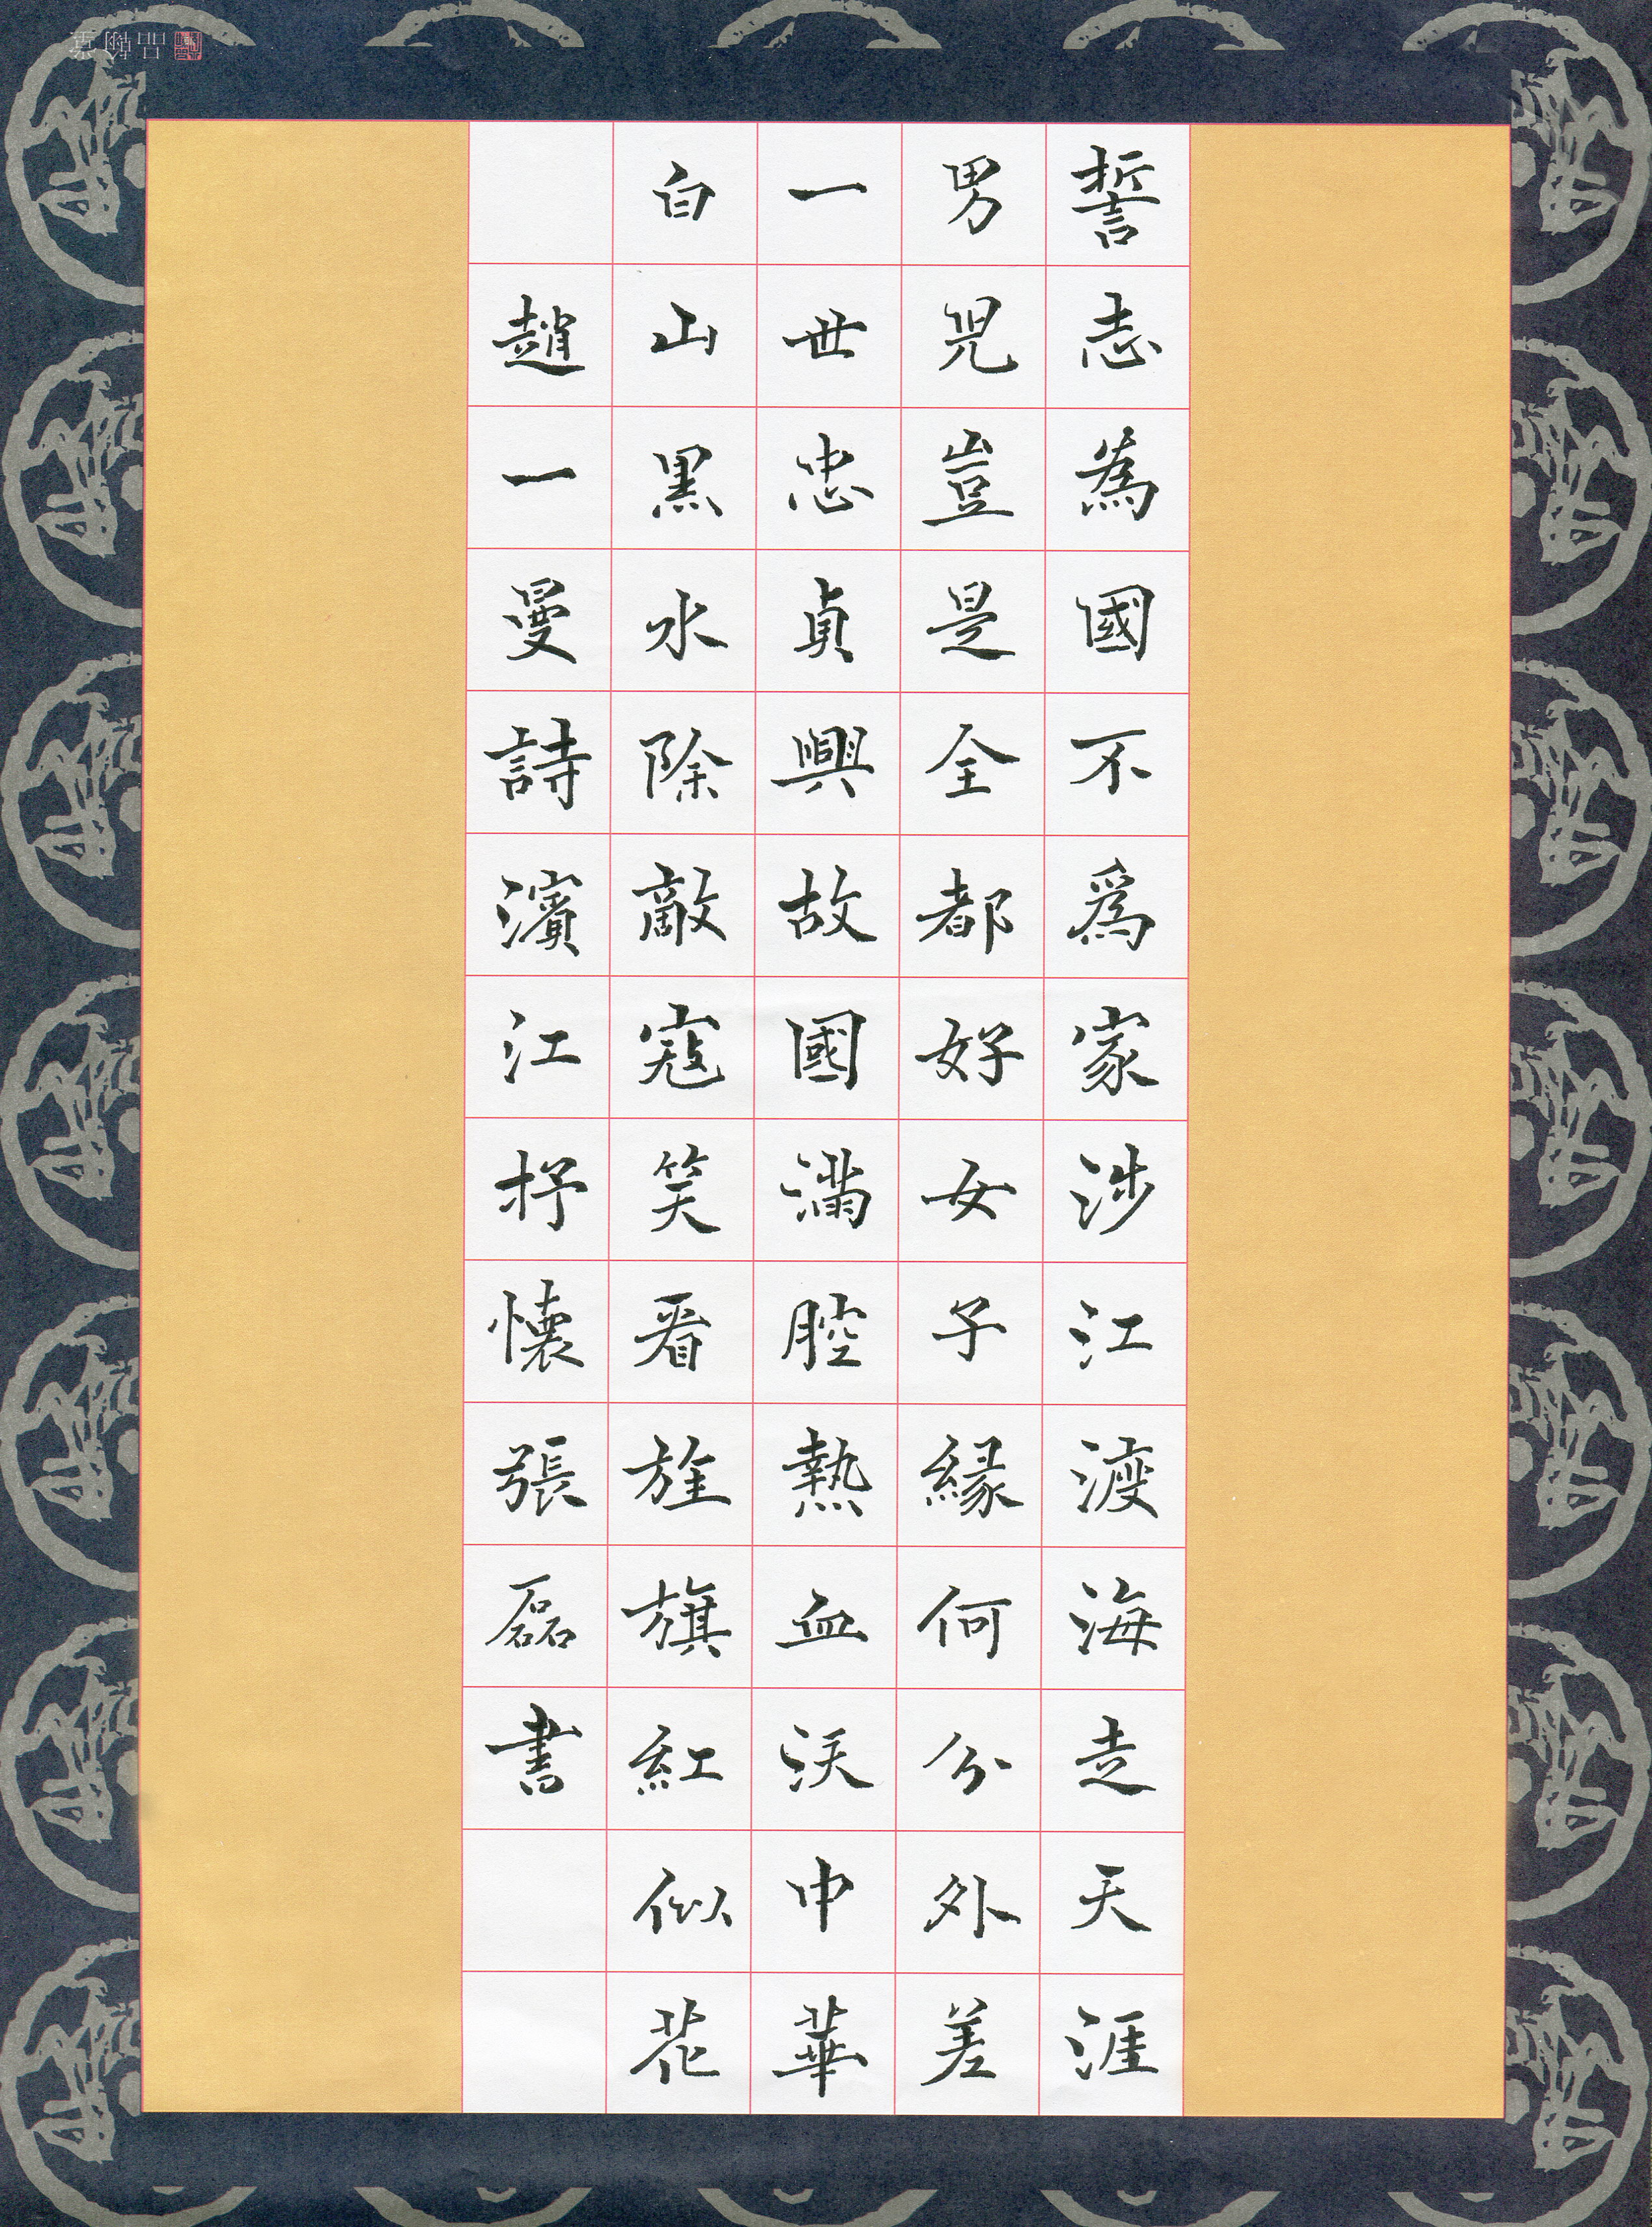 誓志為國不爲家涉江渡海走天涯
男兒豈是全都好女子緣何分外差
一世忠貞興故國滿腔熱血沃中華
白山黑水除敵寇笑看旌旗紅似花
趙一曼詩濱江抒懷張磊書